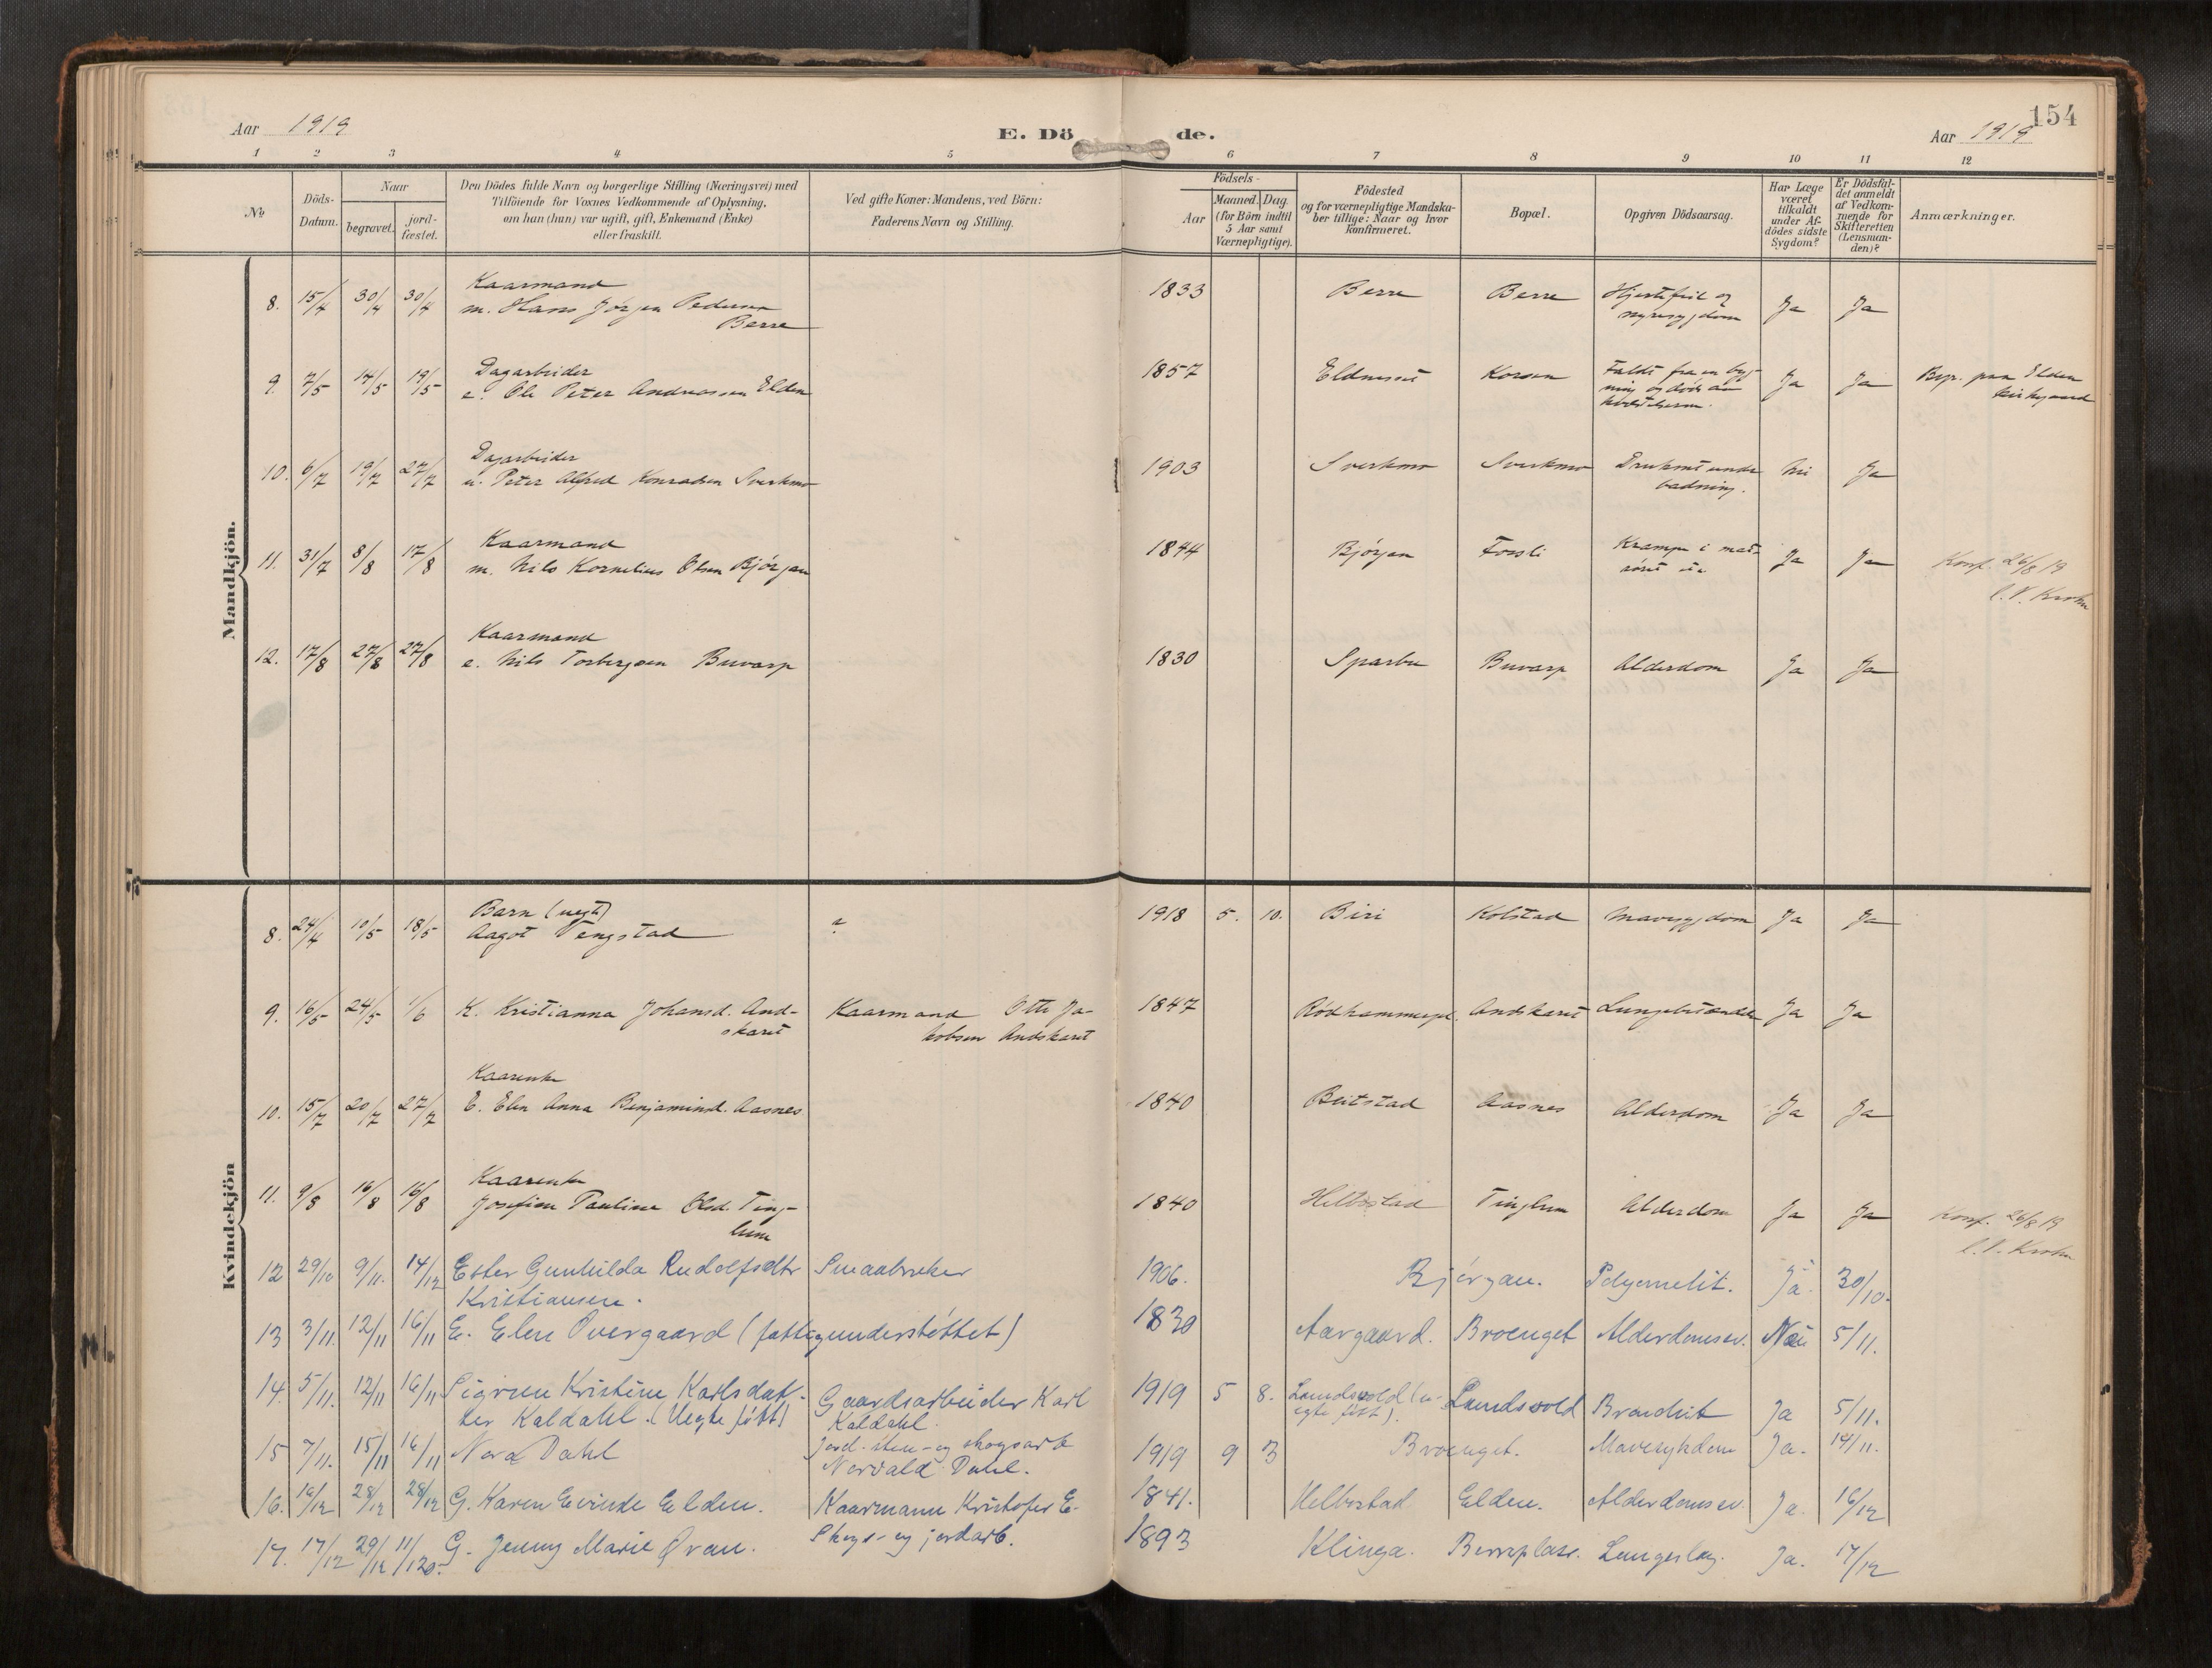 Aar 1919
E. Dö de.
154
Aar 1919
1 2 3 4 5 6 7 8 9 10 11 12
No
Döds-
Datum.
Naar
begravet.
jord-
fæstet.
Den Dödes fulde Navn og borgerlige Stilling (Næringsvei) med
Tilföiende for Voxnes Vedkommende af Oplysning,
om han (hun) var ugift, gift, Enkemand (Enke)
eller fraskilt.
Ved gifte Koner: Mandens, ved Börn:
Faderens Navn og Stilling.
Födsels-
Aar
Maaned. Dag.
(for Börn indtil
5 Aar samt
Værnepligtige).
Födested
og for værnepligtige Mandska-
ber tillige: Naar og hvor
konfirmeret.
Bopæl.
Opgiven Dödsaarsag.
Har Læge
været
tilkaldt
under Af-
dödes sidste
Sygdom?
Er Dödsfal-
det anmeldt
af Vedkom-
mende for
Skifteretten
(Lensman-
den)?
Anmærkninger.
Mandkjön.
Kaarmand
8. 15/4 30/4 30/4 m. Hans Jørgen Pedersen 1833 Berre Berre Hjertefeil og Ja Ja
Berre nyresygdom
Dagarbeider
9. 7/5 14/5 19/5 e. Ole Peter Andreassen Elden 1857 Eldneset Korsen Faldt fra en byg- Ja Ja Begr. paa Elden
ning og døde av kirkegaard
Dagarbeider
10. 6/7 19/7 27/7 u. Peter Alfred Konradsen Sverkmo 1903 Sverkmo Sverkmo Druknet under Nei Ja
badning.
Kaarmand
11. 31/7 8/8 17/8 m. Nils Kornelius Olsen Bjørgan 1844 Bjørgan Fossli Krampe i mat- Ja Ja Konf. 26/8 19
røret Krohn
Kaarmand
12. 17/8 27/8 27/8 e. Nils Torbergsen Buvarp 1830 Sparbu Buvarp Alderdom Ja Ja
Kvindekjön
Barn (uegte)
8. 24/4 10/5 18/5 Aagot Tengstad ? 1918 5. 10. Biri Kolstad Mavesygdom Ja Ja
9. 16/5 24/5 1/6 K. Kristianna Johansd. And- Kaarmand Otto Ja- 1847 Rødhammer Andskaret Lungebetændelse Ja Ja
skaret kobsen Andskaret
Kaarenke
10. 15/7 20/7 27/7 E. Elen Anna Benjamind. Aasnes 1840 Beitstad Aasnes Alderdom Ja Ja
Kaarenke
11. 9/8 16/8 16/8 Josefine Pauline Olsd. Ting- 1840 Hilbostad Tinglum Alderdom Ja Ja Konf. 26/8 19
lum Krohn
12 29/10 9/11. 14/12 Ester Gunhilda Rudolfsdtr Smaabruker 1906. Bjørgan. Polyomelit. Ja. 30/10.
Kristiansen.
13 3/11. 12/11 16/11 E. Elen Overgaard (fattigunderstøttet) 1830 Aargaard. Broenget Alderdomssv. Nei 5/11.
14. 5/11. 12/11 16/11 Sigrun Kristine Karlsdat- Gaardsarbeider Karl 1919 5 8. Lundsvold (u- Lundsvold Bronchit Ja 5/11.
ter Kaldahl. (Uegte født) Kaldahl. egte født).
15 7/11. 15/11 16/11 Nora Dahl Jord- sten- og skogsarb 1919 9 3 Broenget. Mavesykdom Ja. 14/11.
Norvald Dahl.
16. 16/12 28/12 28/12 G. Karen Evinde Elden. Kaarmann Kristofer E. 1841. Helbostad Elden. Alderdomssv. Ja. 16/12
17. 17/12 29/12 11/1 20. G. Jenny Marie Øvan. Skogs- og jordarb. 1893 Klinga. Berreplass. Lungeslag. Ja. 17/12